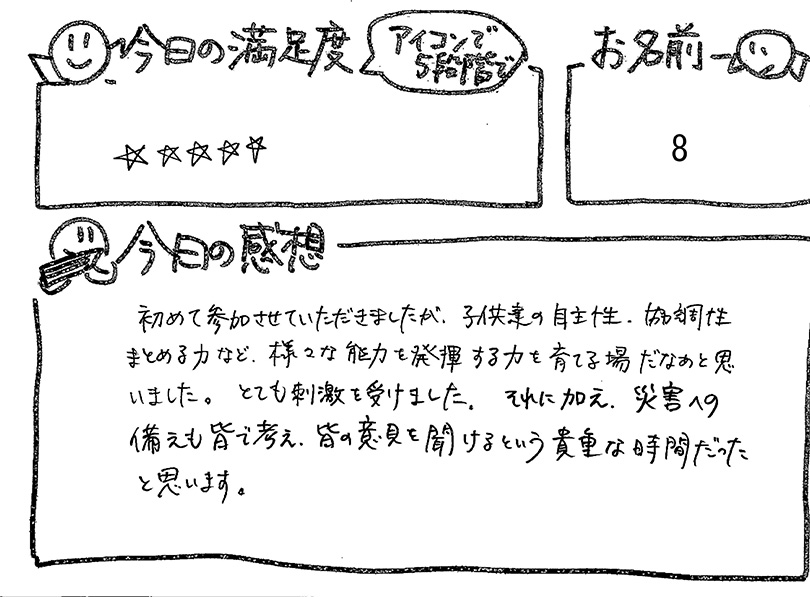 今日の満足度
アイコンで
5段階で
お名前
☆☆☆☆☆
8
今日の感想
初めて参加させていただきましたが、子供達の自主性、協調性
まとめる力など、様々な能力を発揮する力を育てる場だなぁと思
いました。とても刺激を受けました。それに加え、災害への
備えも皆で考え、皆の意見を聞けるという貴重な時間だった
と思います。